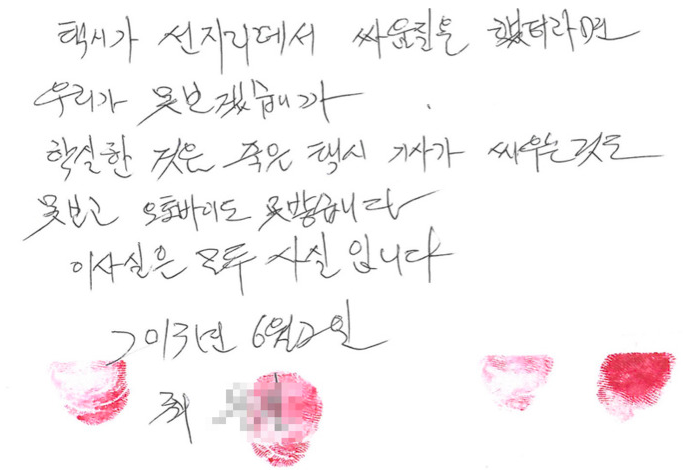 택시가 선자리에서 싸움질을 했더라면
우리가 못보겠습니까
확실한 것은 죽은 택시 기사가 싸우는것도
못보고 오토바이도 못봤습니다
이사실은 모두 사실 입니다
2013년 6월2일
최